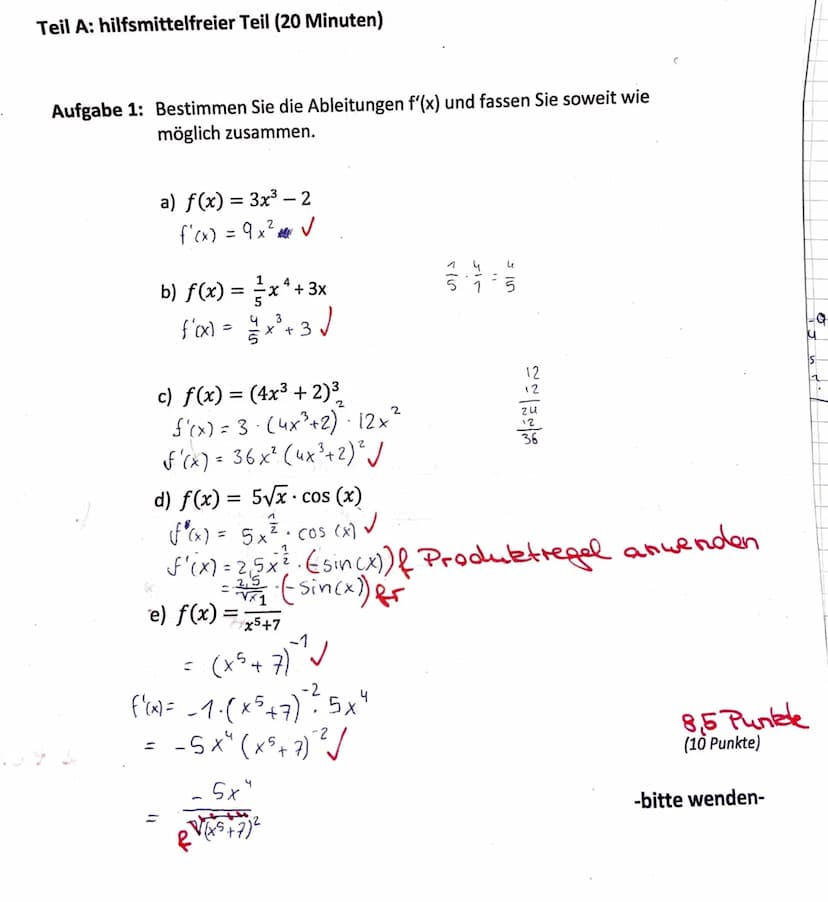 Teil A: hilfsmittelfreier Teil (20 Minuten)
Aufgabe 1: Bestimmen Sie die Ableitungen f'(x) und fassen Sie soweit wie
möglich zusammen.
a) f(x) = 3x³ – 2
f'(x) = 9x² ✓
b) f(x) = 1/5 x⁴ + 3x
1/5 · 4/1 = 4/5
f'(x) = 4/5 x³ + 3 ✓
c) f(x) = (4x³ + 2)³
12
12
24
12
36
f'(x) = 3 · (4x³+2)² · 12x²
f'(x) = 36x² (4x³+2)² ✓
d) f(x) = 5√x · cos (x)
f(x) = 5x^(1/2) · cos (x) ✓
f'(x) = 2,5x^(-1/2) · (-sin(x)) f Produktregel anwenden
= 2,5/√x · (-sin(x)) fr
e) f(x) = 1/(x⁵+7)
= (x⁵ + 7)⁻¹ ✓
f'(x) = -1·(x⁵+7)⁻² · 5x⁴
= -5x⁴ (x⁵+7)⁻² ✓
8,5 Punkte
(10 Punkte)
= -5x⁴/√(x⁵+7)²
f
-bitte wenden-